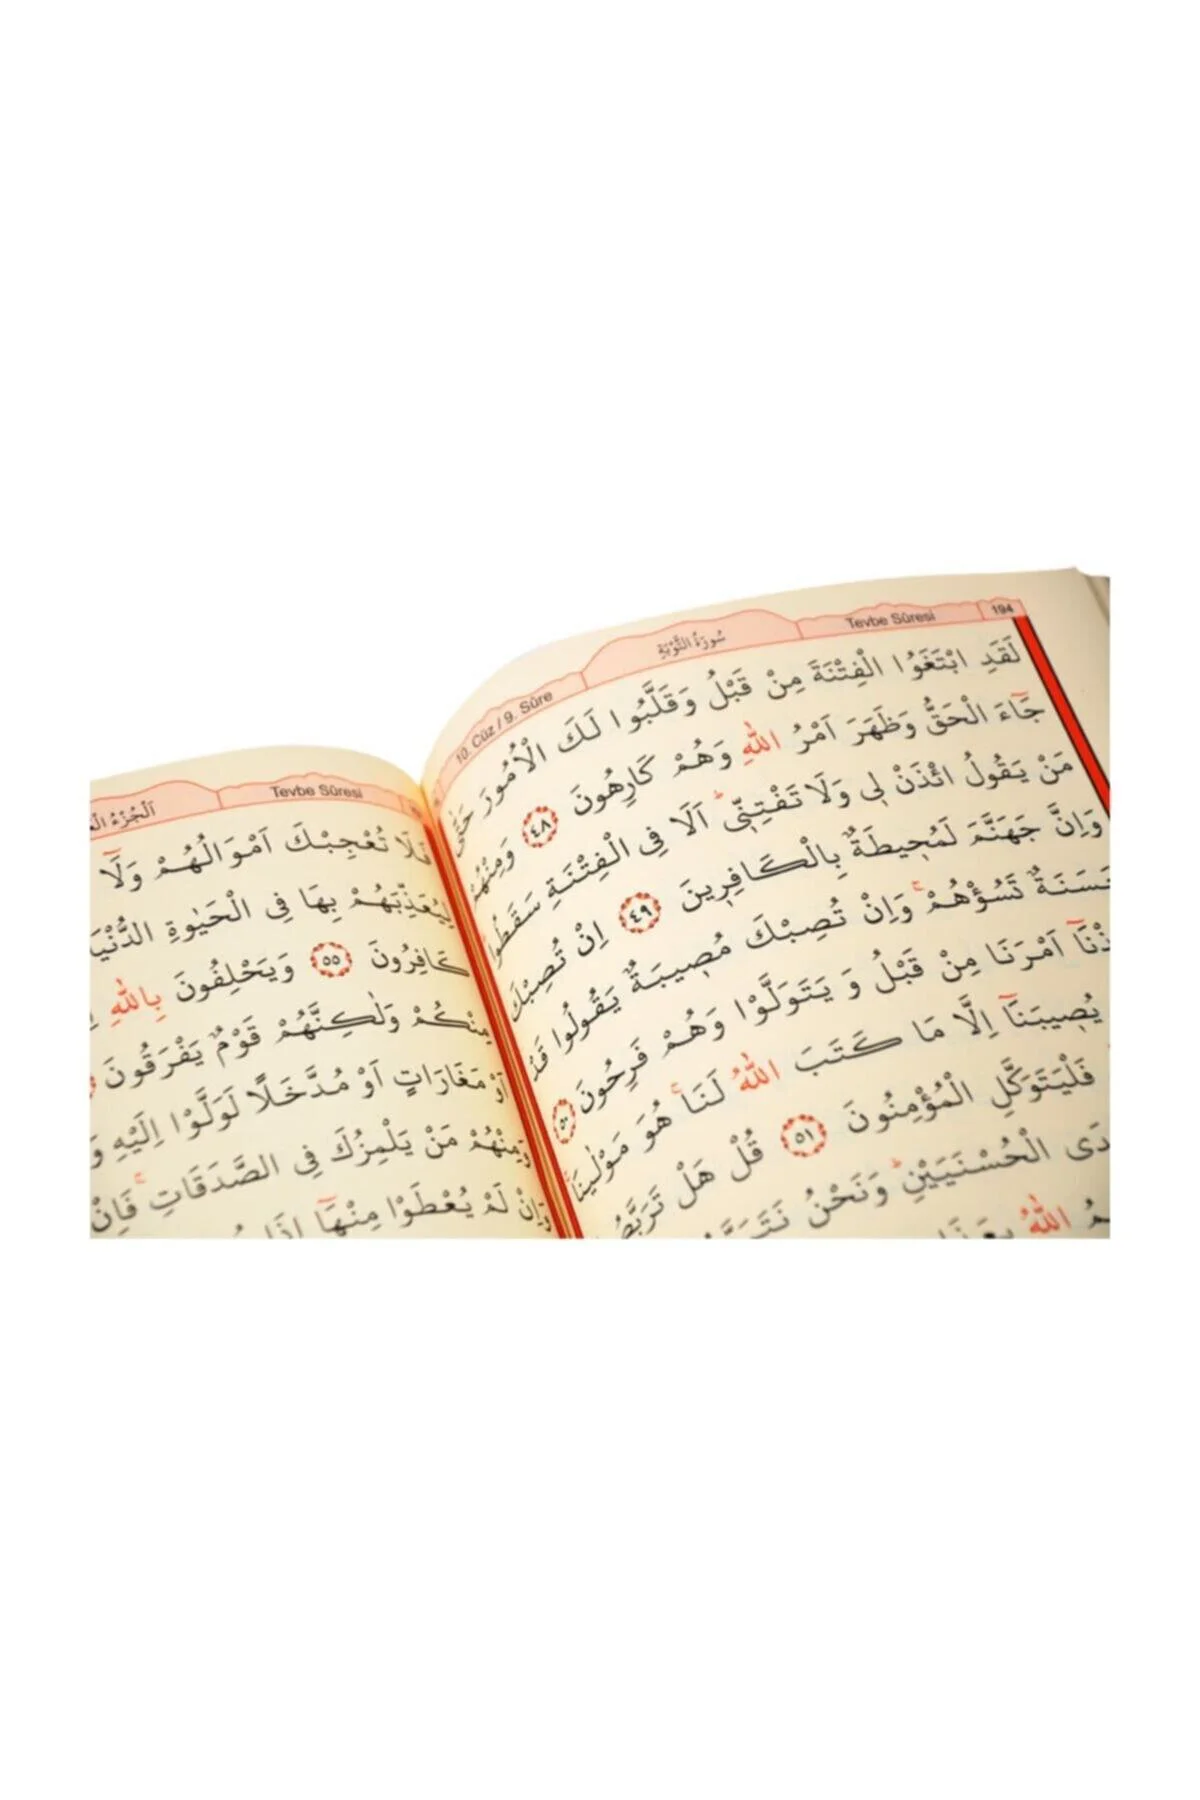 194
Tevbe Sûresi
سُورَةُ التَّوْبَةِ
10. Cüz / 9. Sûre
لَقَدِ ابْتَغَوُا الْفِتْنَةَ مِنْ قَبْلُ وَقَلَّبُوا لَكَ الْاُمُورَ حَتّٰى
جَٓاءَ الْحَقُّ وَظَهَرَ اَمْرُ اللّٰهِ وَهُمْ كَارِهُونَ ﴿٤٨﴾ وَمِنْهُمْ
مَنْ يَقُولُ ائْذَنْ ل۪ي وَلَا تَفْتِنّ۪يۜ اَلَا فِي الْفِتْنَةِ سَقَطُوا
وَاِنَّ جَهَنَّمَ لَمُح۪يطَةٌ بِالْكَافِر۪ينَ ﴿٤٩﴾ اِنْ تُصِبْكَ
حَسَنَةٌ تَسُؤْهُمْۚ وَاِنْ تُصِبْكَ مُص۪يبَةٌ يَقُولُوا قَدْ
اَمْرَنَا مِنْ قَبْلُ وَيَتَوَلَّوْا وَهُمْ فَرِحُونَ ﴿٥٠﴾
يُص۪يبَنَٓا اِلَّا مَا كَتَبَ اللّٰهُ لَنَاۚ هُوَ مَوْلٰينَا
فَلْيَتَوَكَّلِ الْمُؤْمِنُونَ ﴿٥١﴾ قُلْ هَلْ تَرَبَّصُ
دَى الْحُسْنَيَيْنِۜ وَنَحْنُ
اللّٰهُ
Tevbe Sûresi
اَلْجُزْءُ
فَلَا تُعْجِبْكَ اَمْوَالُهُمْ وَلَٓا
لِيُعَذِّبَهُمْ بِهَا فِي الْحَيٰوةِ الدُّنْيَا
كَافِرُونَ ﴿٥٥﴾ وَيَحْلِفُونَ بِاللّٰهِ
مِنْكُمْ وَلٰكِنَّهُمْ قَوْمٌ يَفْرَقُونَ
اَوْ مَغَارَاتٍ اَوْ مُدَّخَلًا لَوَلَّوْا اِلَيْهِ وَ
وَمِنْهُمْ مَنْ يَلْمِزُكَ فِي الصَّدَقَاتِۚ فَاِنْ
وَاِنْ لَمْ يُعْطَوْا مِنْهَٓا اِذَا